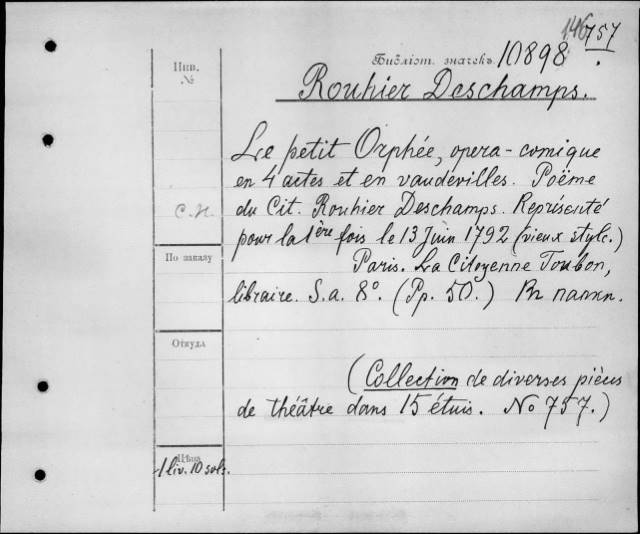 146 757
Библіот. значекъ 10898
Инв.
№
Rouhier Deschamps.
Le petit Orphée, opera-comique
en 4 actes et en vaudevilles. Poëme
С.Н.
du Cit. Rouhier Deschamps. Représenté
pour la 1ère fois le 13 Juin 1792 (vieux style.)
По заказу
Paris. La Citoyenne Toubon,
libraire. S.a. 8°. (Pp. 50.) Въ папкѣ.
Откуда
(Collection de diverses pièces
de théâtre dans 15 étuis. No 757.)
Цѣна
1 liv. 10 sols.